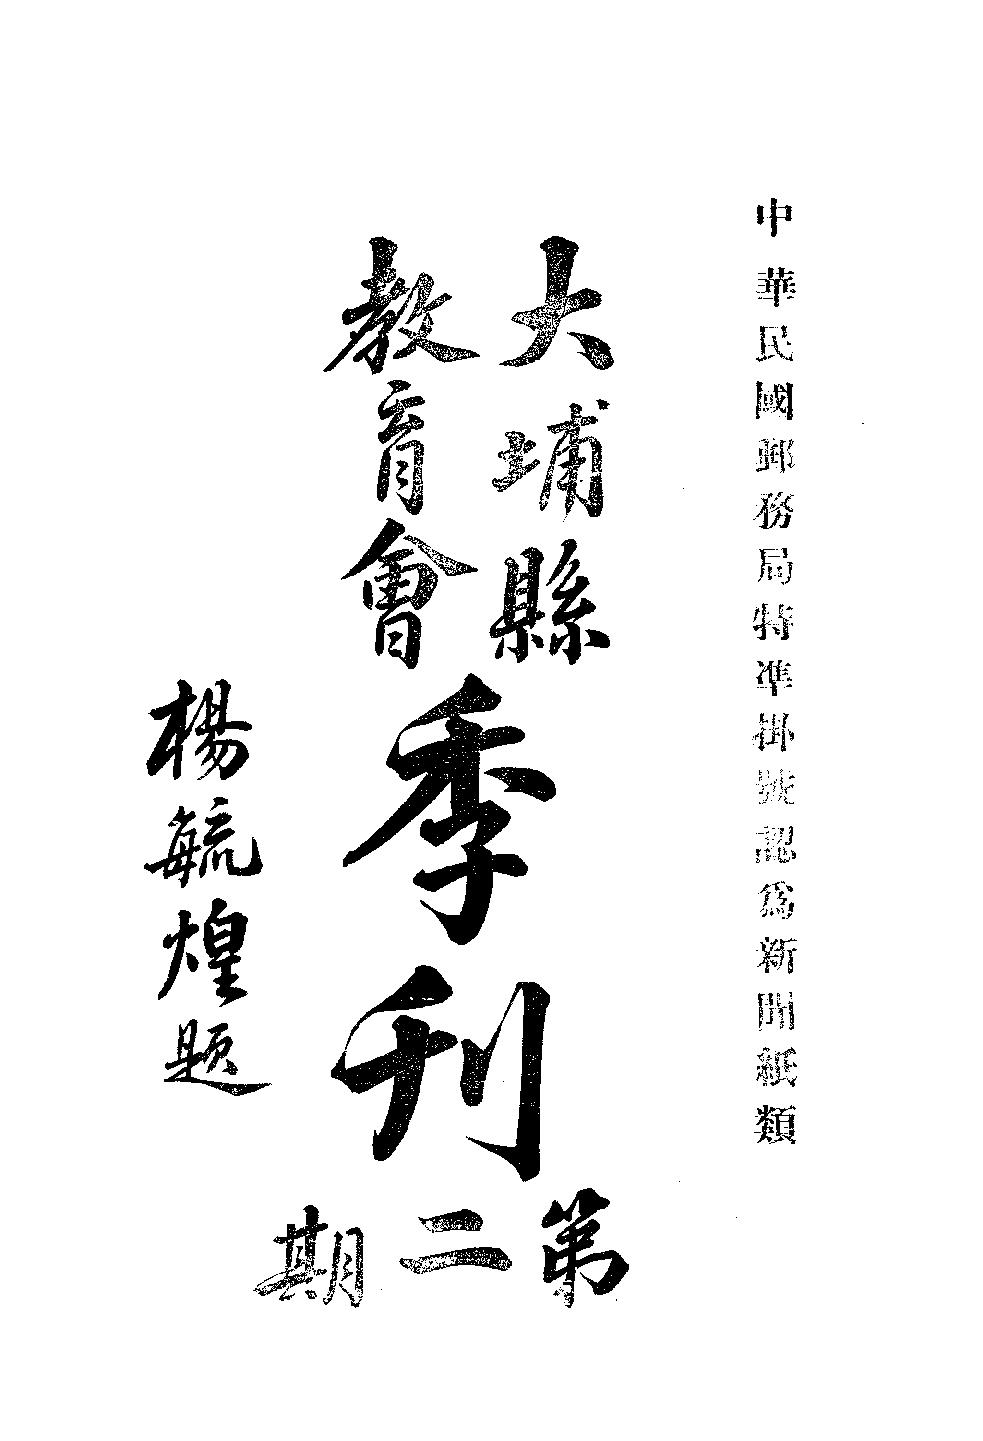 中華民國郵務局特準掛號認爲新聞紙類
大埔縣
教育會
季刊
第二期
楊毓煌題